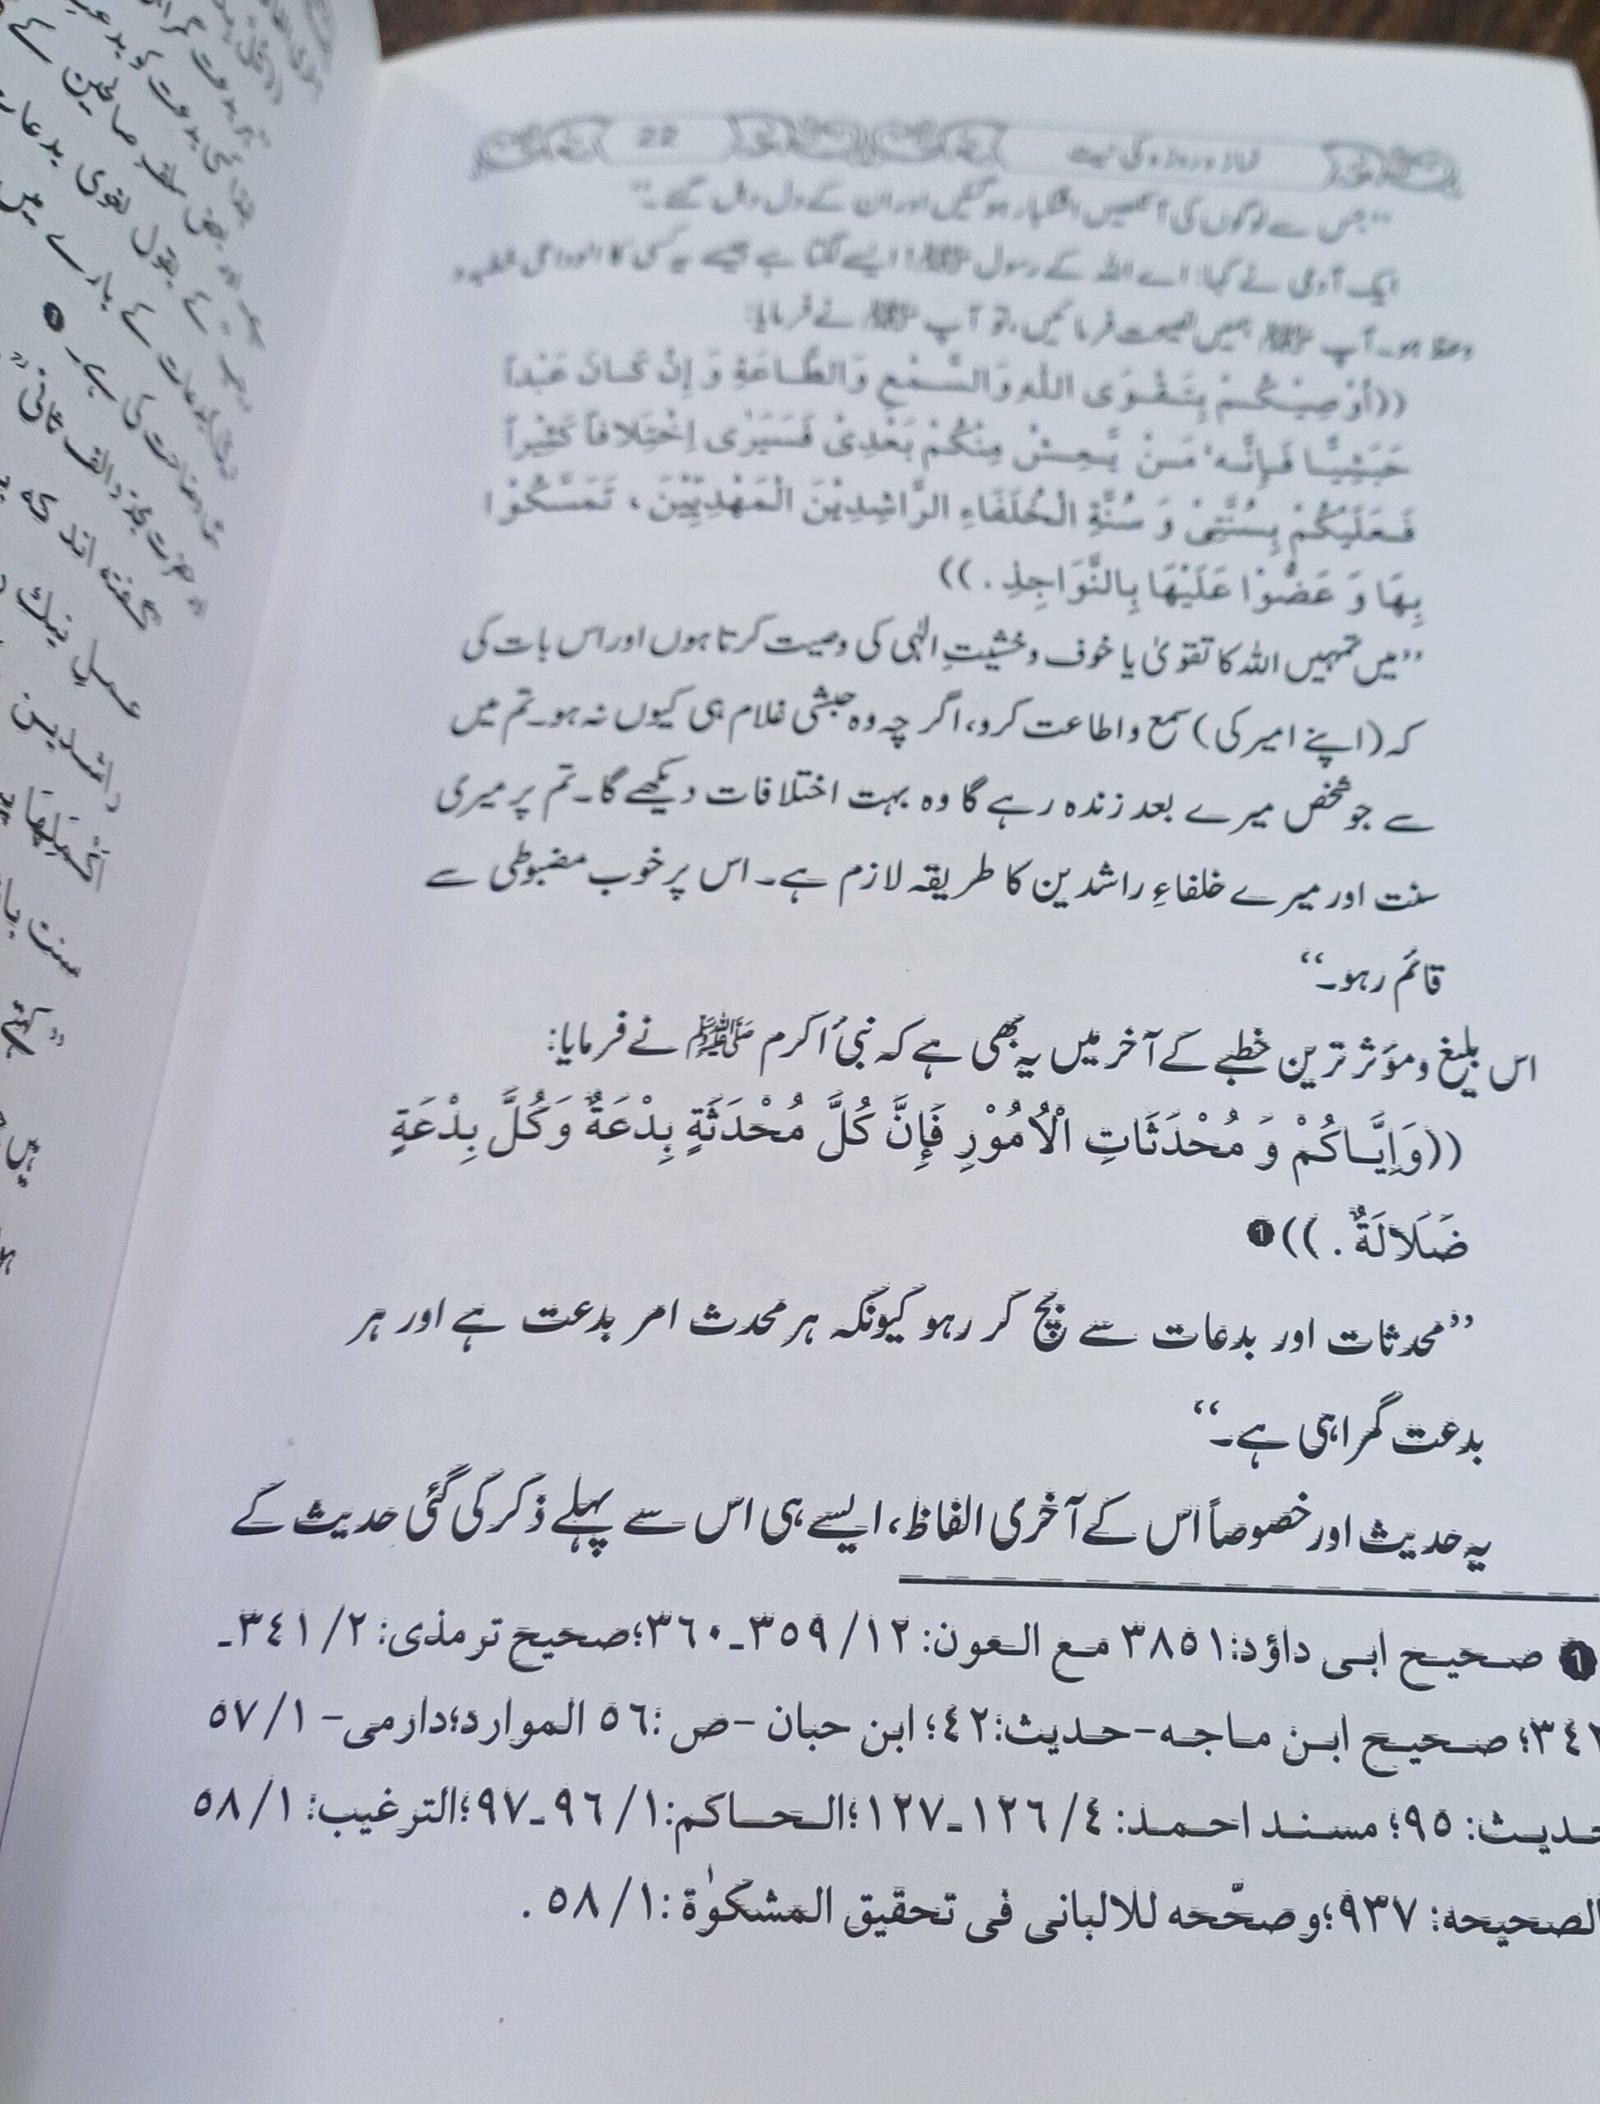 نماز و روزہ کی نیت 22
”جس سے لوگوں کی آنکھیں اشکبار ہو گئیں اور ان کے دل دہل گئے۔“
ایک آدمی نے کہا: اے اللہ کے رسول ﷺ! ایسے لگتا ہے جیسے یہ کسی کا الوداعی خطبہ و
وعظ ہو۔ آپ ﷺ ہمیں نصیحت فرمائیں، تو آپ ﷺ نے فرمایا:
((أُوْصِيْكُمْ بِتَقْوَى اللّٰهِ وَالسَّمْعِ وَالطَّاعَةِ وَ إِنْ كَانَ عَبْداً
حَبَشِيًّا فَإِنَّهٗ مَنْ يَّعِشْ مِنْكُمْ بَعْدِىْ فَسَيَرٰى إِخْتِلَافاً كَثِيْراً
فَعَلَيْكُمْ بِسُنَّتِىْ وَ سُنَّةِ الْخُلَفَاءِ الرَّاشِدِيْنَ الْمَهْدِيِّيْنَ، تَمَسَّكُوْا
بِهَا وَ عَضُّوْا عَلَيْهَا بِالنَّوَاجِذِ.))
”میں تمہیں اللہ کا تقویٰ یا خوف و خشیتِ الٰہی کی وصیت کرتا ہوں اور اس بات کی
کہ (اپنے امیر کی) سمع و اطاعت کرو، اگر چہ وہ حبشی غلام ہی کیوں نہ ہو۔ تم میں
سے جو شخص میرے بعد زندہ رہے گا وہ بہت اختلافات دیکھے گا۔ تم پر میری
سنت اور میرے خلفاءِ راشدین کا طریقہ لازم ہے۔ اس پر خوب مضبوطی سے
قائم رہو۔“
اس بلیغ و مؤثر ترین خطبے کے آخر میں یہ بھی ہے کہ نبیٔ اکرم ﷺ نے فرمایا:
((وَإِيَّاكُمْ وَ مُحْدَثَاتِ الْاُمُوْرِ فَإِنَّ كُلَّ مُحْدَثَةٍ بِدْعَةٌ وَكُلَّ بِدْعَةٍ
ضَلَالَةٌ.))❶
”محدثات اور بدعات سے بچ کر رہو کیونکہ ہر محدث امر بدعت ہے اور ہر
بدعت گمراہی ہے۔“
یہ حدیث اور خصوصاً اس کے آخری الفاظ، ایسے ہی اس سے پہلے ذکر کی گئی حدیث کے
❶ صحیح ابی داؤد: ٣٨٥١ مع العون: ١٢/ ٣٥٩۔٣٦٠؛صحیح ترمذی: ٢/ ٣٤١۔
٣٤٢؛ صحیح ابن ماجه-حدیث:٤٢؛ ابن حبان -ص :٥٦ الموارد؛دارمی- ١/ ٥٧
حدیث: ٩٥؛ مسند احمد: ٤/ ١٢٦۔١٢٧؛الحاکم:١/ ٩٦۔٩٧؛الترغیب: ١/ ٥٨
الصحیحه: ٩٣٧؛وصحّحه للالبانی فی تحقیق المشکوٰة :١/ ٥٨.